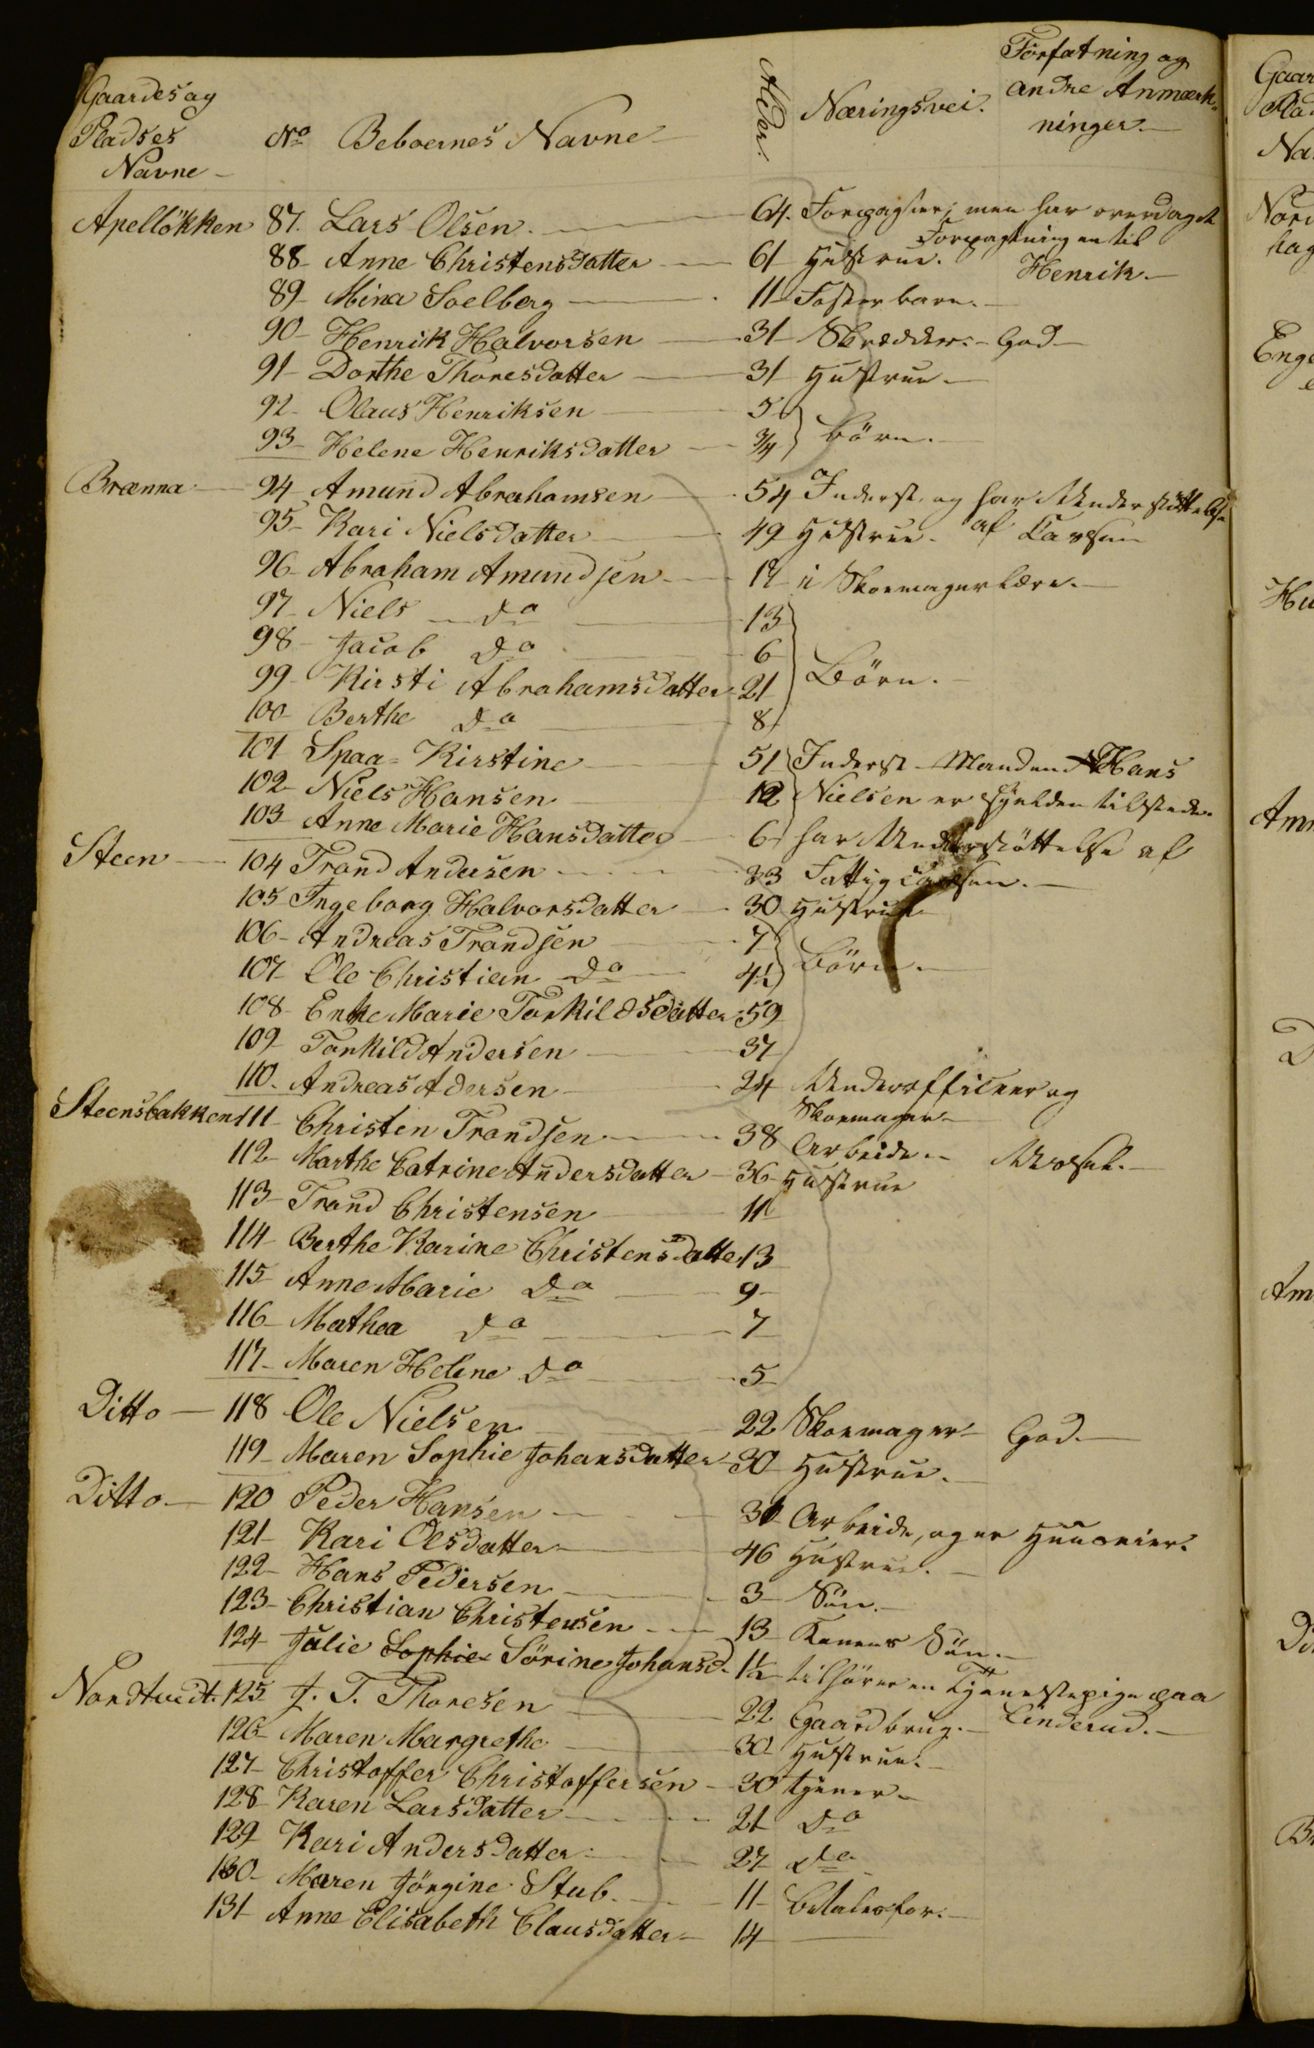 Gaardes og Pladses Navne - No Beboernes Navne - Alder. Næringsvei. Forfatning og andre Anmærk-
ninger.-
Apelløkken 87. Lars Olsen. 64. Forpagter; men har overdraget
Forpagtningen til
88- Anne Christensdatter 61 Hustrue. Henrik.-
89- Mina Soelberg 11 Fosterbarn.-
90- Henrik Halvorsen 31 Skrædder.- God-
91- Dorthe Thoresdatter 31 Hustrue-
92- Olaus Henriksen 5
93- Helene Henriksdatter 3/4 } Børn.-
Brænna 94 Amund Abrahamsen 54 Inderst og har Understøttelse
95- Kari Nielsdatter 49 Hustrue. af Cassen
96- Abraham Amundsen 17 i Skoemagerlære.-
97- Niels do 13
98- Jacob do 6
99- Kirsti Abrahamsdatter 21 } Børn.-
100- Berthe do 8
101 Spaa-Kirstine 51 Inderst - Manden Hans
102- Niels Hansen 12 Nielsen er sjelden tilstede.
103- Anne Marie Hansdatter 6 har Understøttelse af
Steen 104 Trond Andersen 33 Fattigcassen.-
105 Ingeborg Halvorsdatter 30 Hustrue
106- Andreas Trondsen 7
107 Ole Christian do 4½ } Børn.-
108- Enke Marie Torkildsdatter 59
109- Torkild Andersen 37
110- Andreas Adersen 24 Underofficeer og
Skoemager-
Steensbakken 111 Christen Trondsen 38 Arbeide.- Ussel.-
112- Marthe Catrine Andersdatter 36 Hustrue
113- Trond Christensen 11
114 Berthe Karine Christensdatter 13
115- Anne Marie do 9-
116- Mathea do 7
117- Maren Helene do 5
Ditto 118 Ole Nielsen 22 Skoemager- God.-
119- Maren Sophie Johansdatter 30 Hustrue.-
Ditto- 120 Peder Hansen 31 Arbeide, og er Huuseier.
121- Kari Olsdatter- 46 Hustrue.-
122- Hans Pedersen 3 Søn.-
123- Christian Christensen 13 Konens Søn.-
124- Julie Sophie Sørine Johansd. 1½ tilhører en Tjenestepige paa
Nordtvedt. 125 J. T. Thoresen 22 Gaardbrug.- Linderud.-
126- Maren Margrethe 30 Hustrue.-
127- Christoffer Christoffersen 30 tjener-
128- Karen Larsdatter 21 do
129 Kari Andersdatter 27 do
130- Maren Jørgine Stub 11 betales for.-
131- Anne Elisabeth Clausdatter 14